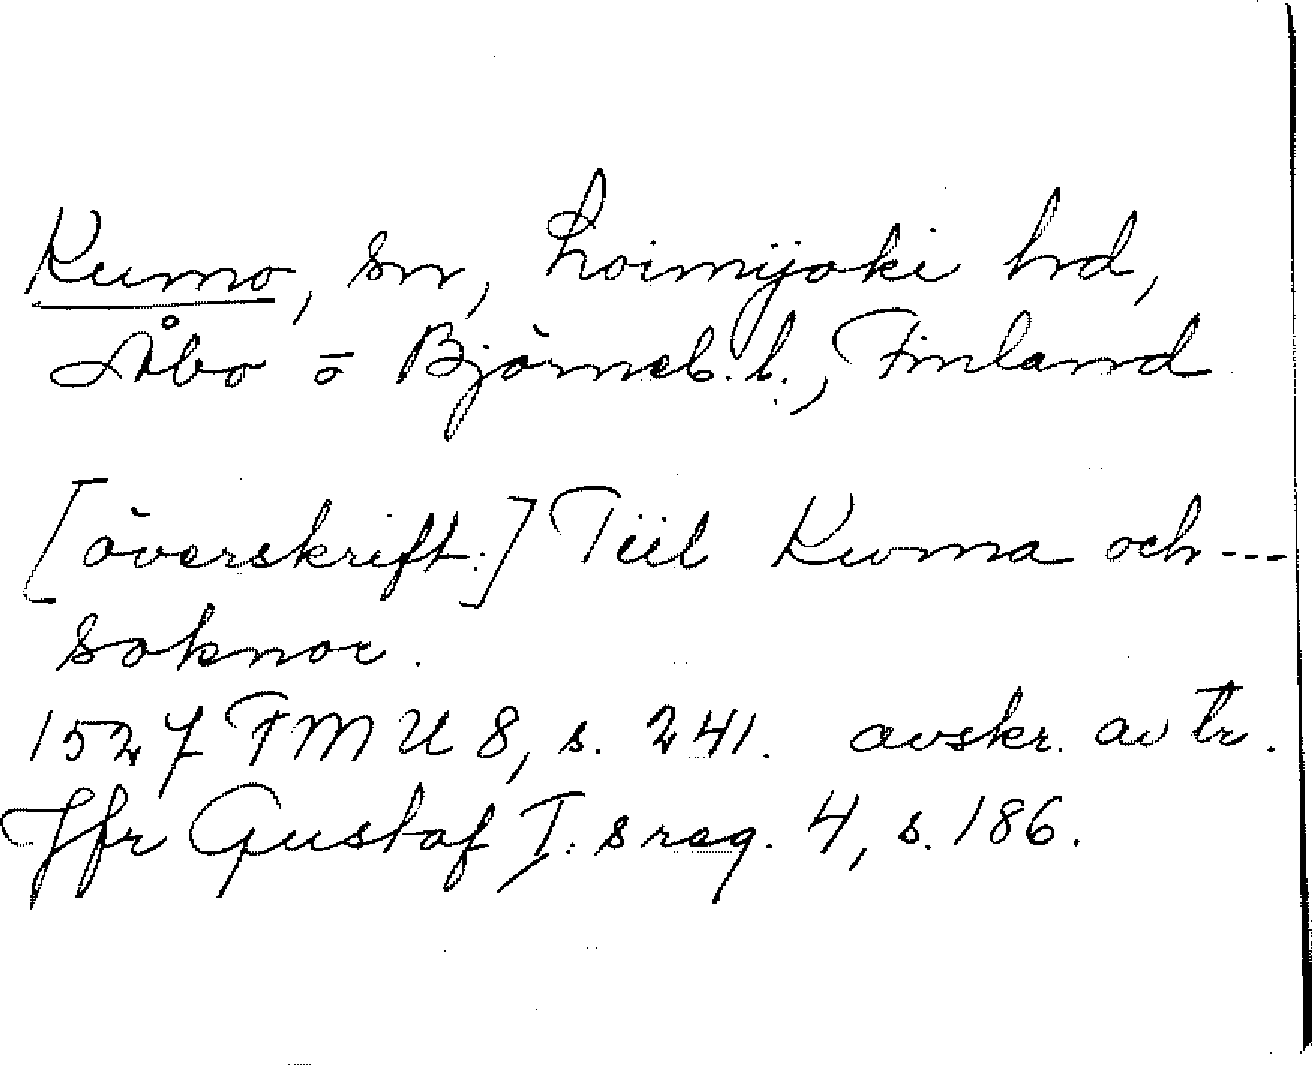 Kumo, sn, Loimijoki hd,
Åbo o Björneb. l., Finland
[överskrift:] Tiil Kwma och ---
soknar.
1527 FMU 8, s. 241. avskr. av tr.
Jfr Gustaf I:s reg. 4, s. 186.